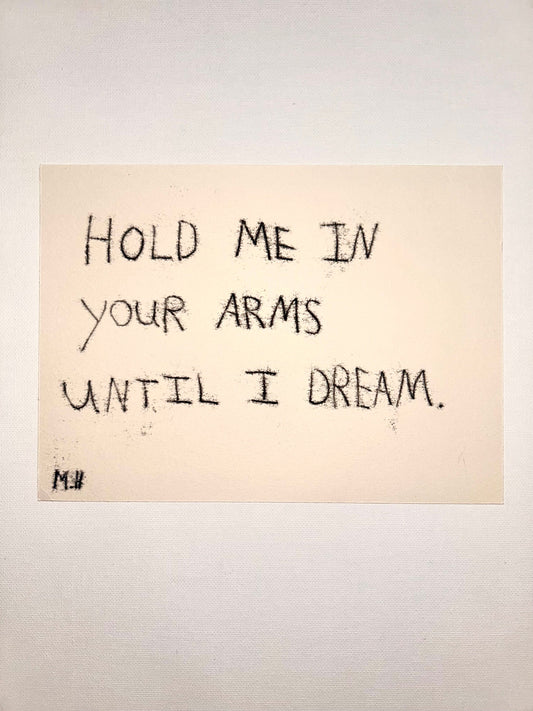 HOLD ME IN
YOUR ARMS
UNTIL I DREAM.
M.H